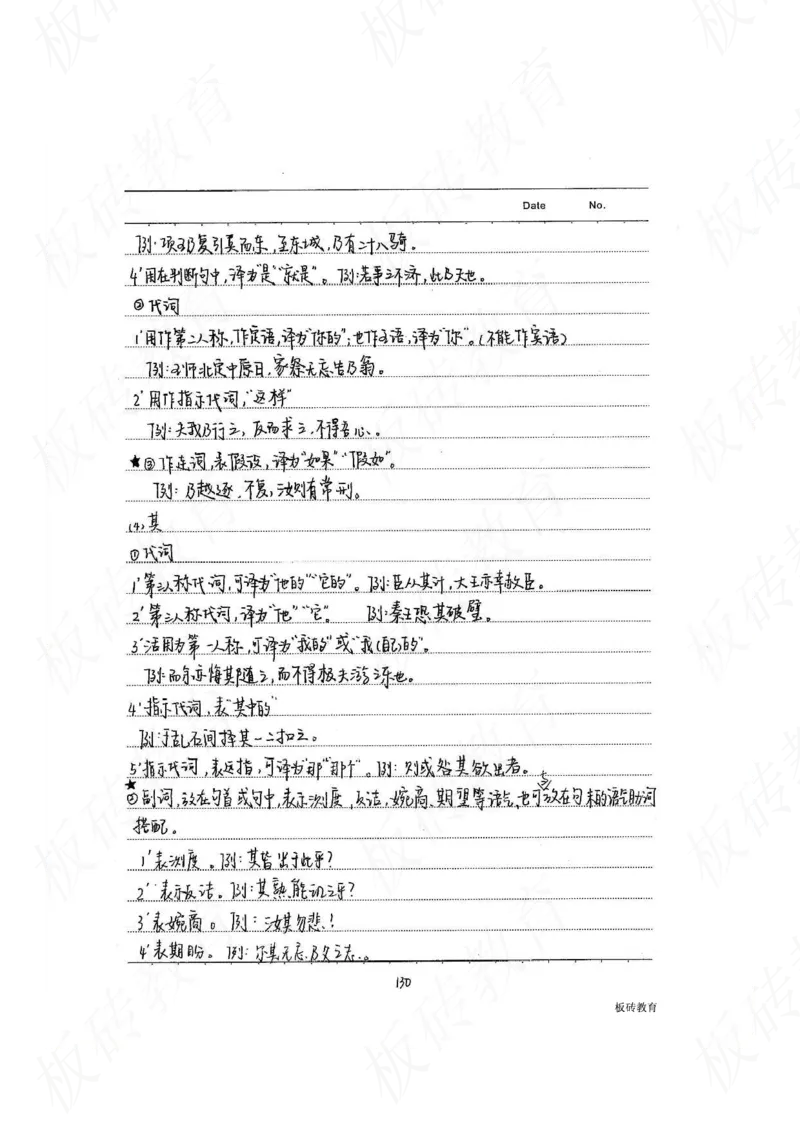 Date No.
例:项王乃复引兵而东,至东城,乃有二十八骑。
4'用在判断句中,译为"是""就是"。例:若事之不济,此乃天也。
②代词
1'用作第二人称,作定语,译为"你的";也作主语,译为"你"。(不能作宾语)
例:王师北定中原日,家祭无忘告乃翁。
2'用作指示代词,"这样"
例:夫我乃行之,反而求之,不得吾心。
★③作连词,表假设,译为"如果""假如"。
例:乃越逐,不复,汝则有常刑。
(4)其
①代词
1'第三人称代词,可译为"他的""它的"。例:臣从其计,大王亦幸赦臣。
2'第三人称代词,译为"他""它"。 例:秦王恐其破璧。
3'活用为第一人称,可译为"我的"或"我(自己)的"。
例:而余亦悔其随之,而不得极夫游之乐也。
4'指示代词,表"其中的"
例:于乱石间择其一二扣之。
5'指示代词,表远指,可译为"那""那个"。例:则或咎其欲出者。
★②副词,放在句首或句中,表示测度,反诘,婉商、期望等语气,也可与放在句末的语气助词
搭配。
1'表测度。例:其皆出于此乎?
2'表示反诘。例:其孰能讥之乎?
3'表婉商。例:汝其勿悲!
4'表期盼。例:尔其无忘乃父之志。
130
板砖教育